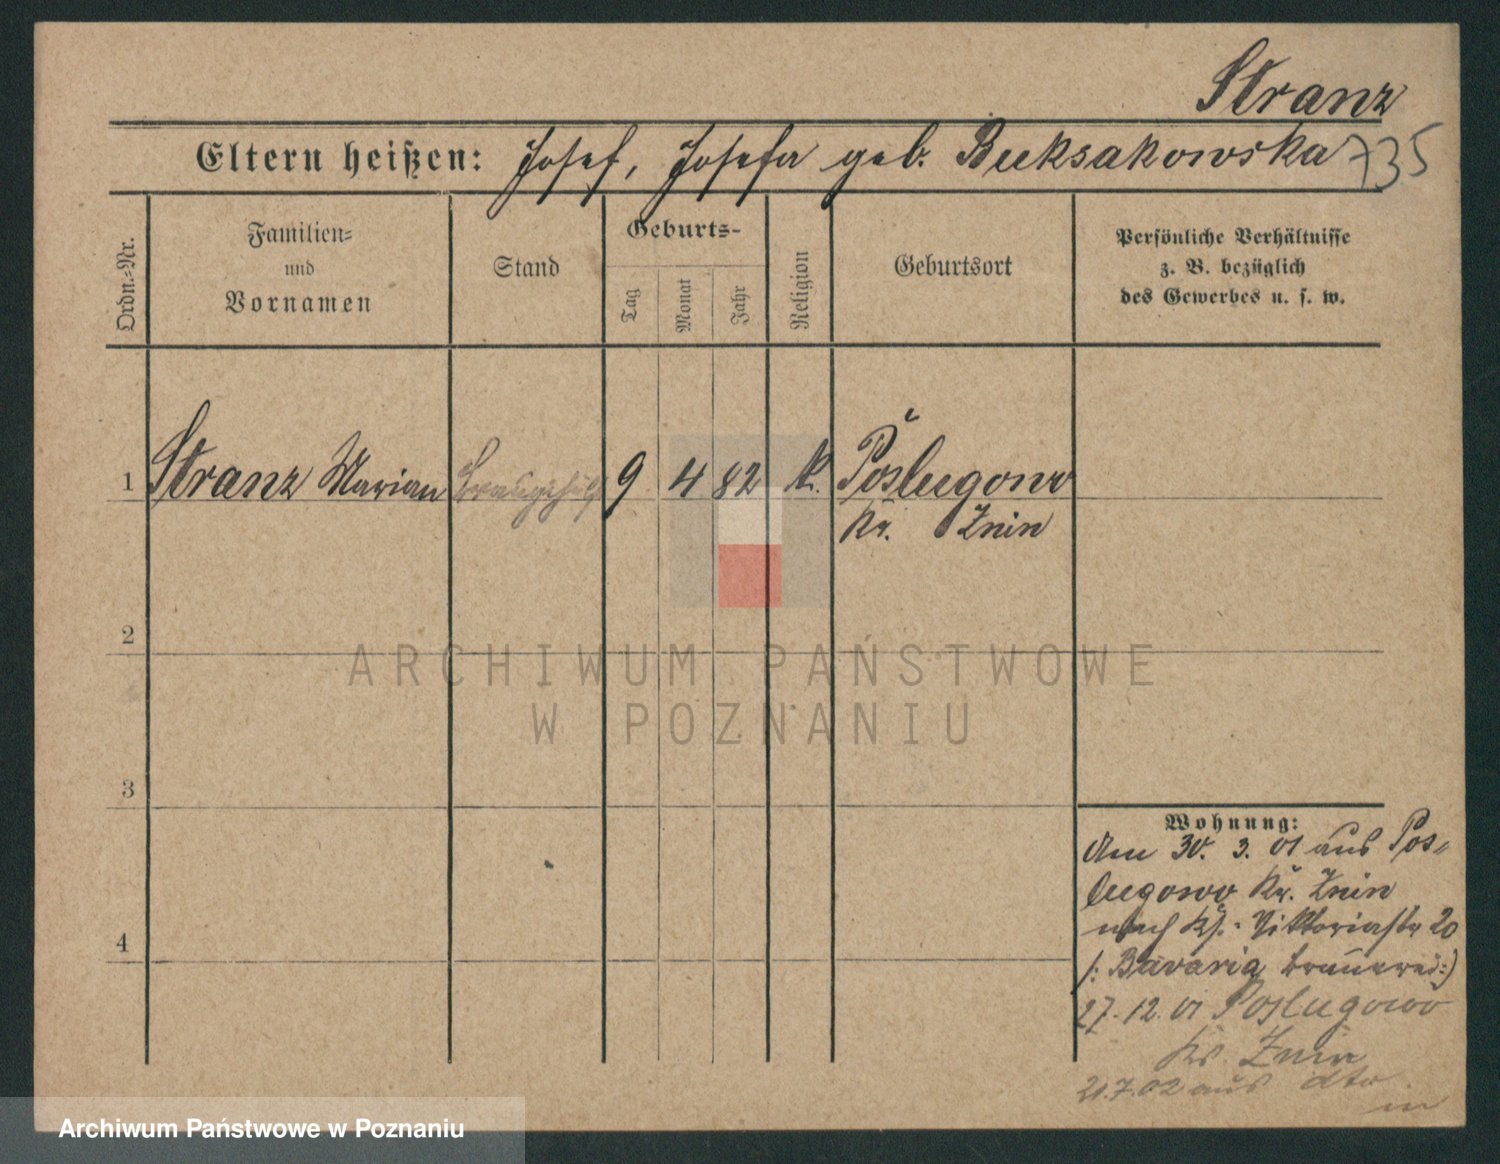 Stranz
Eltern heißen: Josef, Josefa geb. Buksakowska 735
Ordn.-Nr.
Familien-
und
Vornamen
Stand
Geburts-
Tag
Monat
Jahr
Religion
Geburtsort
Persönliche Verhältnisse
z. B. bezüglich
des Gewerbes u. s. w.
1 Stranz Marian 9 4 82 k. Poslugowo
Kr. Znin
2
ARCHIWUM PAŃSTWOWE
W POZNANIU
3
Wohnung:
Am 30. 3. 01 aus Pos-
lugowo Kr. Znin
nach Viktoriastr 20
4
/: Bavaria brauerei :)
27. 12. 01 Poslugowo
Kr. Znin
21.7.02 aus dto
in
Archiwum Państwowe w Poznaniu